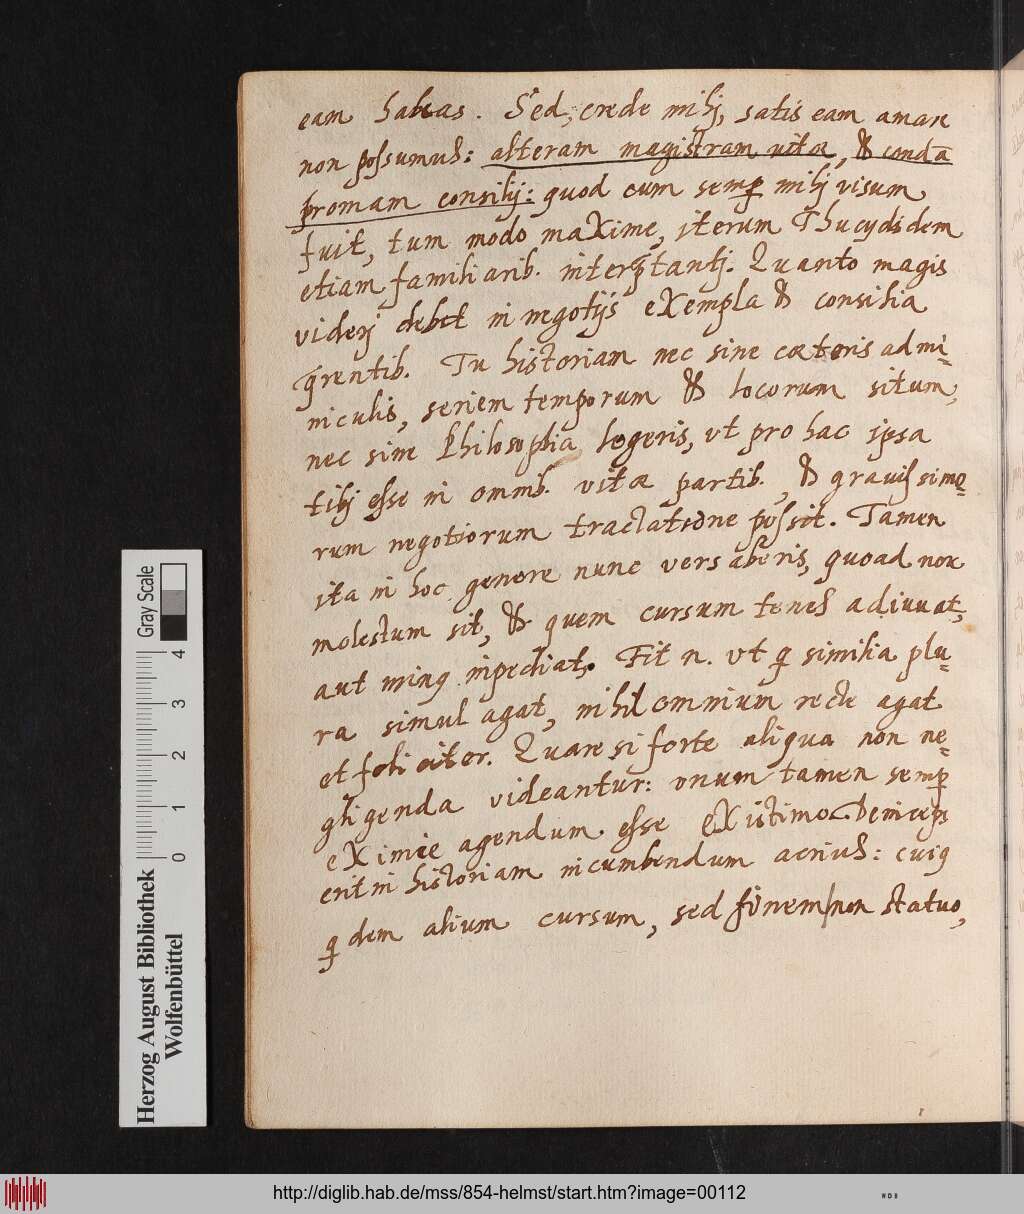 eam habeas. Sed, crede mihj, satis eam amare
non possumus: alteram magistram vitæ, & condā
promam consilij: quod cum semp mihj visum
fuit, tum modo maXime, iterum Thucydidem
etiam familiarib. interptantj. Quanto magis
viderj debet in negotijs eXempla & consilia
qrentib. Tu historiam nec sine cœteris admi=
niculis, seriem temporum & locorum situm,
nec sine Philosophia legeris, vt pro hac ipsa
tibj esse in omnib. vitæ partib., & grauissimo=
rum negotiorum tractatione possit. Tamen
ita in hoc genere nunc versaberis, quoad non
molestum sit, & quem cursum tenes adiuuat,
aut minq inpediat. Fit n. vt q similia plu=
ra simul agat, nihil omnium recte agat
et feliciter. Quare si forte aliqua non ne=
gligenda videantur: vnum tamen semp
eXimie agendum esse eXistimo. Deinceps
erit in historiam incumbendum acrius: cuiq
qdem alium cursum, sed finem non statuo,
Herzog August Bibliothek
Wolfenbüttel
Gray Scale
0 1 2 3 4
http://diglib.hab.de/mss/854-helmst/start.htm?image=00112